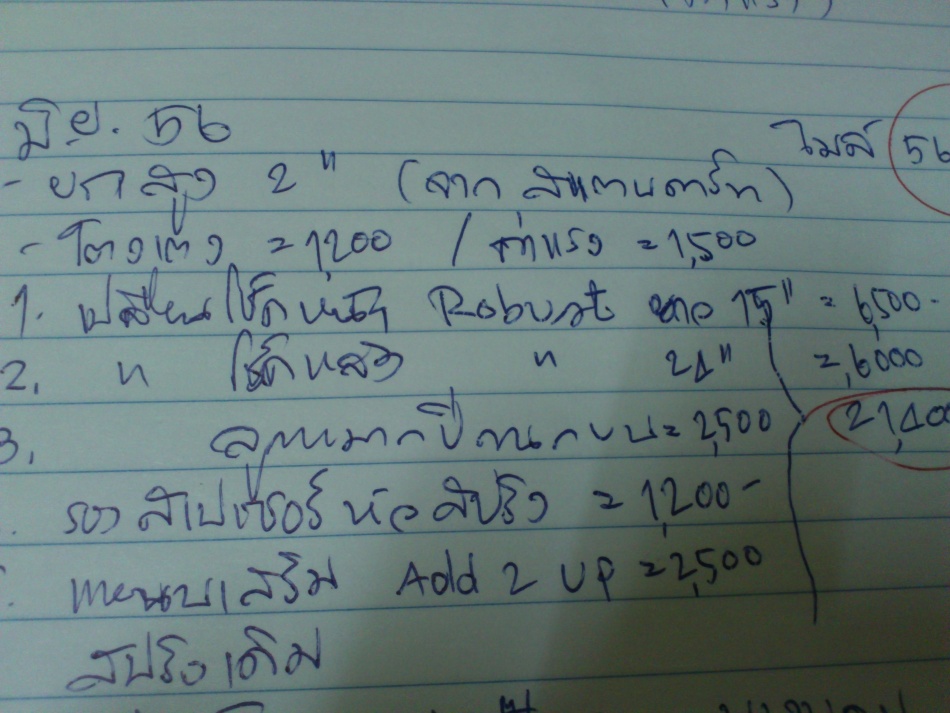 มิ.ย. 56
ไมล์ 56
- ยกสูง 2" (จากสแตนดาร์ท)
- โตงเตง = 1,200 / ค่าแรง = 1,500
1. เปลี่ยนโช๊คหน้า Robust ยาว 15" = 6,500-
2. " โช๊คหลัง " 21" = 6,000
3. ลูกหมากปีกนกบน = 2,500
21,400
รองสเปเซอร์หัวสปริง = 1,200-
แหนบเสริม Add 2 UP = 2,500
สปริงเดิม